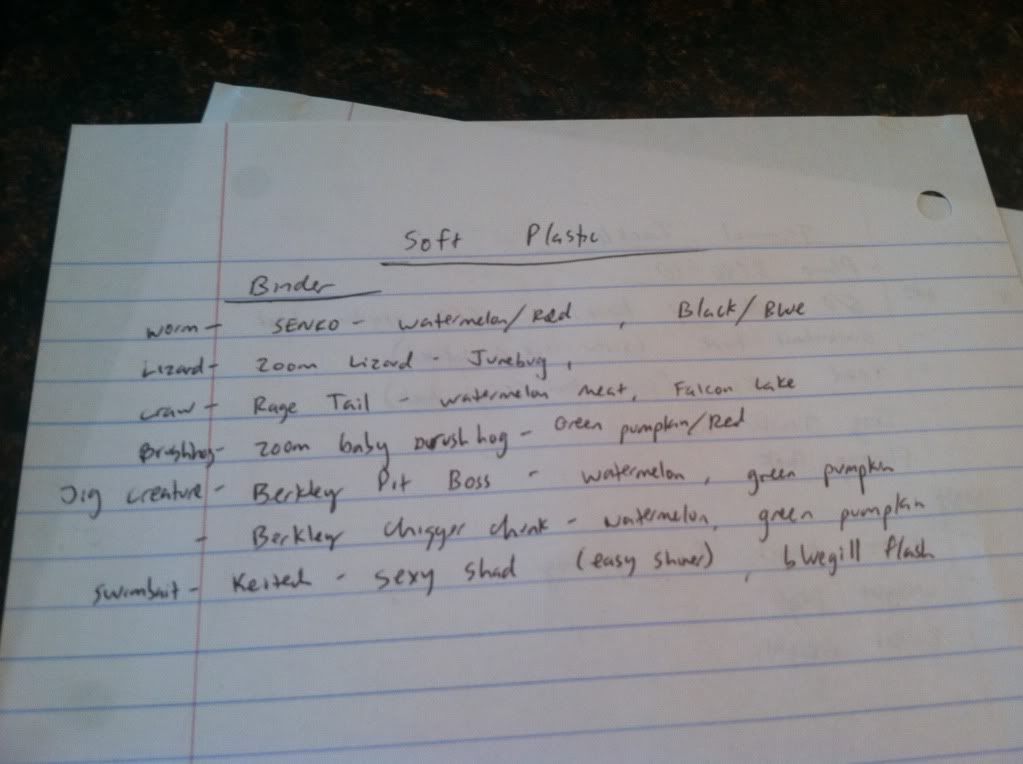 Soft Plastic
Binder
worm - SENKO - watermelon/Red , Black/Blue
Lizard - Zoom Lizard - Junebug ,
craw - Rage Tail - watermelon meat, Falcon Lake
Brushhog - Zoom baby brush hog - Green pumpkin/Red
Jig creature - Berkley Pit Boss - watermelon, green pumpkin
- Berkley chigger chunk - watermelon, green pumpkin
swimbait - Keitech - sexy shad (easy shiner) , bluegill flash